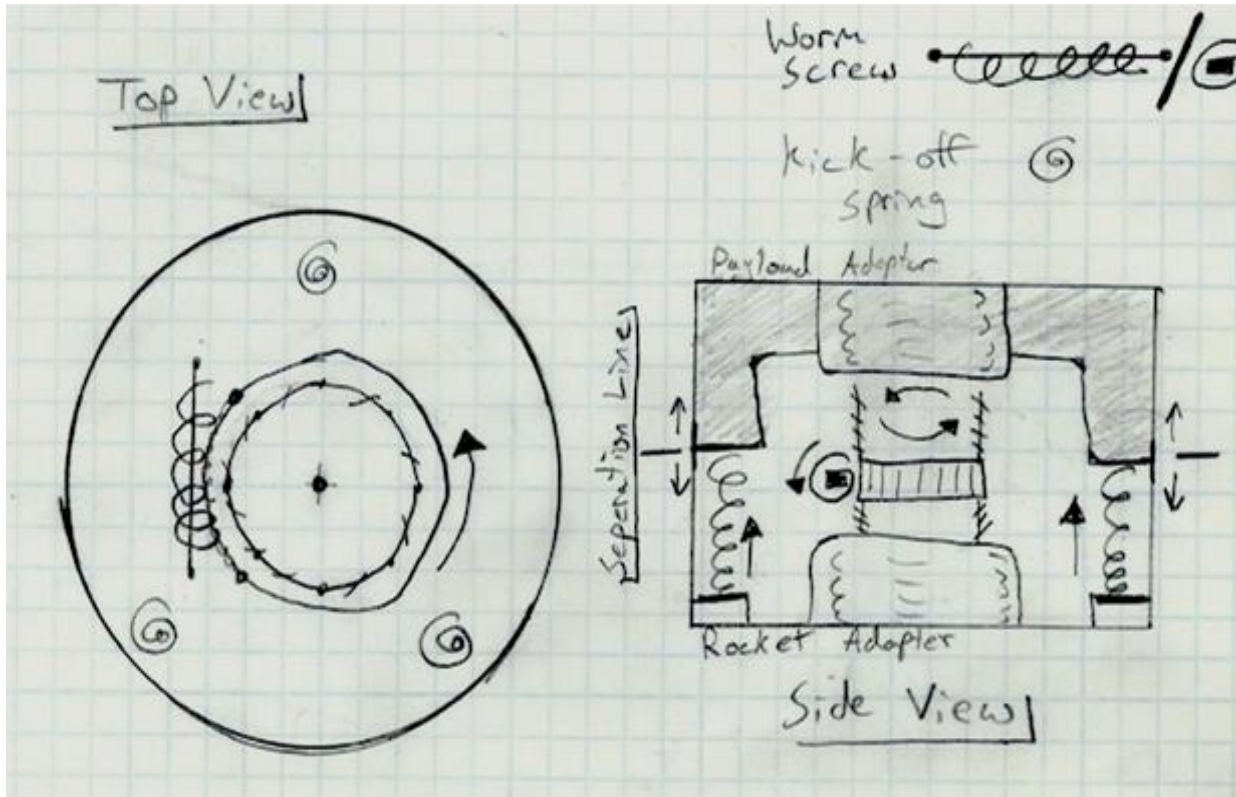 Top View
Worm
Screw
Kick-off
spring
Payload Adapter
Seperation Line
Rocket Adapter
Side View